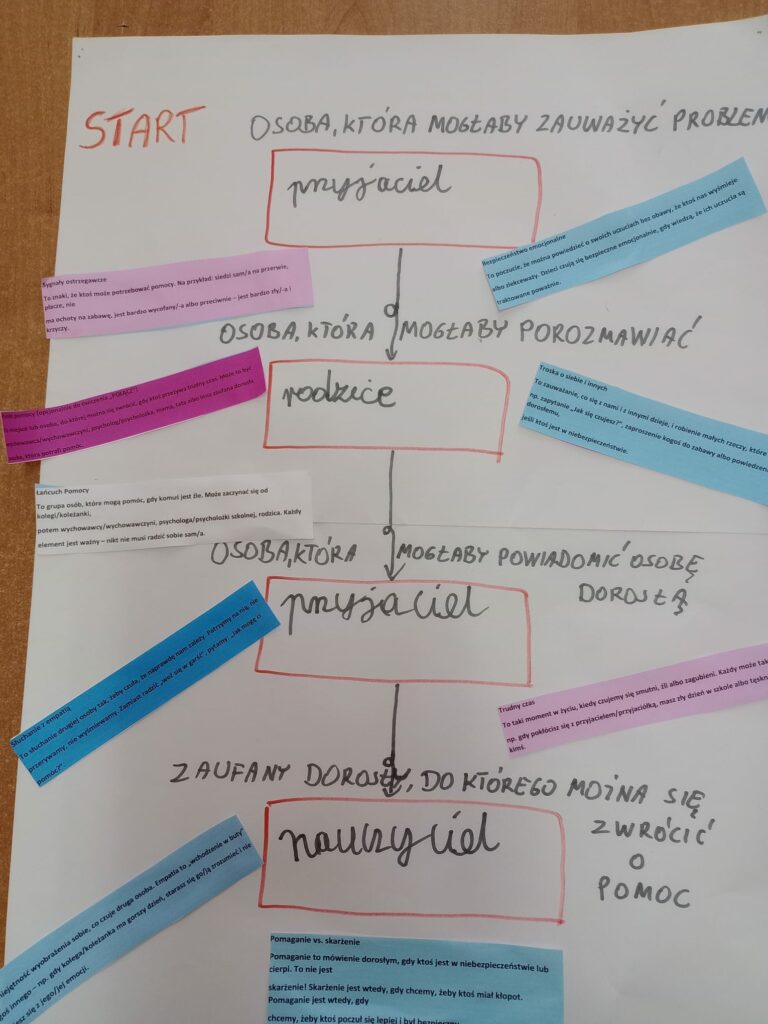 START
OSOBA, KTÓRA MOGŁABY ZAUWAŻYĆ PROBLEM
przyjaciel
Bezpieczeństwo emocjonalne
To poczucie, że można powiedzieć o swoich uczuciach bez obawy, że ktoś nas wyśmieje
albo zlekceważy. Dzieci czują się bezpieczne emocjonalnie, gdy wiedzą, że ich uczucia są
traktowane poważnie.
Sygnały ostrzegawcze
To znaki, że ktoś może potrzebować pomocy. Na przykład: siedzi sam/a na przerwie,
płacze, nie
ma ochoty na zabawę, jest bardzo wycofany/-a albo przeciwnie – jest bardzo zły/-a i
krzyczy.
OSOBA, KTÓRA MOGŁABY POROZMAWIAĆ
rodzice
pomocy (opcjonalnie do ćwiczenia
miejsce lub osoba, do której można się zwrócić, gdy ktoś przeżywa trudny czas. Może to być
wychowawca/wychowawczyni, psycholog/psycholożka, mama, tata albo inna zaufana dorosła
osoba, która potrafi pomóc.
Troska o siebie i innych
To zauważanie, co się z nami i z innymi dzieje, i robienie małych rzeczy, które
np. zapytanie „Jak się czujesz?”, zaproszenie kogoś do zabawy albo powiedzenie
dorosłemu,
jeśli ktoś jest w niebezpieczeństwie.
Łańcuch Pomocy
To grupa osób, które mogą pomóc, gdy komuś jest źle. Może zaczynać się od
kolegi/koleżanki,
potem wychowawcy/wychowawczyni, psychologa/psycholożki szkolnej, rodzica. Każdy
element jest ważny – nikt nie musi radzić sobie sam/a.
OSOBA, KTÓRA MOGŁABY POWIADOMIĆ OSOBĘ
DOROSŁĄ
przyjaciel
Słuchanie z empatią
To słuchanie drugiej osoby tak, żeby czuła, że naprawdę nam zależy. Patrzymy na nią, nie
przerywamy, nie wyśmiewamy. Zamiast radzić „weź się w garść”, pytamy: „Jak mogę ci
pomóc?”
Trudny czas
To taki moment w życiu, kiedy czujemy się smutni, źli albo zagubieni. Każdy może tak
np. gdy pokłócisz się z przyjacielem/przyjaciółką, masz zły dzień w szkole albo
kimś.
ZAUFANY DOROSŁY, DO KTÓREGO MOŻNA SIĘ
ZWRÓCIĆ
O
POMOC
nauczyciel
wyobrażenia sobie, co czuje druga osoba. Empatia to „wchodzenie w buty”
innego – np. gdy kolega/koleżanka ma gorszy dzień, starasz się go/ją zrozumieć i nie
się z jego/jej emocji.
Pomaganie vs. skarżenie
Pomaganie to mówienie dorosłym, gdy ktoś jest w niebezpieczeństwie lub
cierpi. To nie jest
skarżenie! Skarżenie jest wtedy, gdy chcemy, żeby ktoś miał kłopot.
Pomaganie jest wtedy, gdy
chcemy, żeby ktoś poczuł się lepiej i był bezpieczny